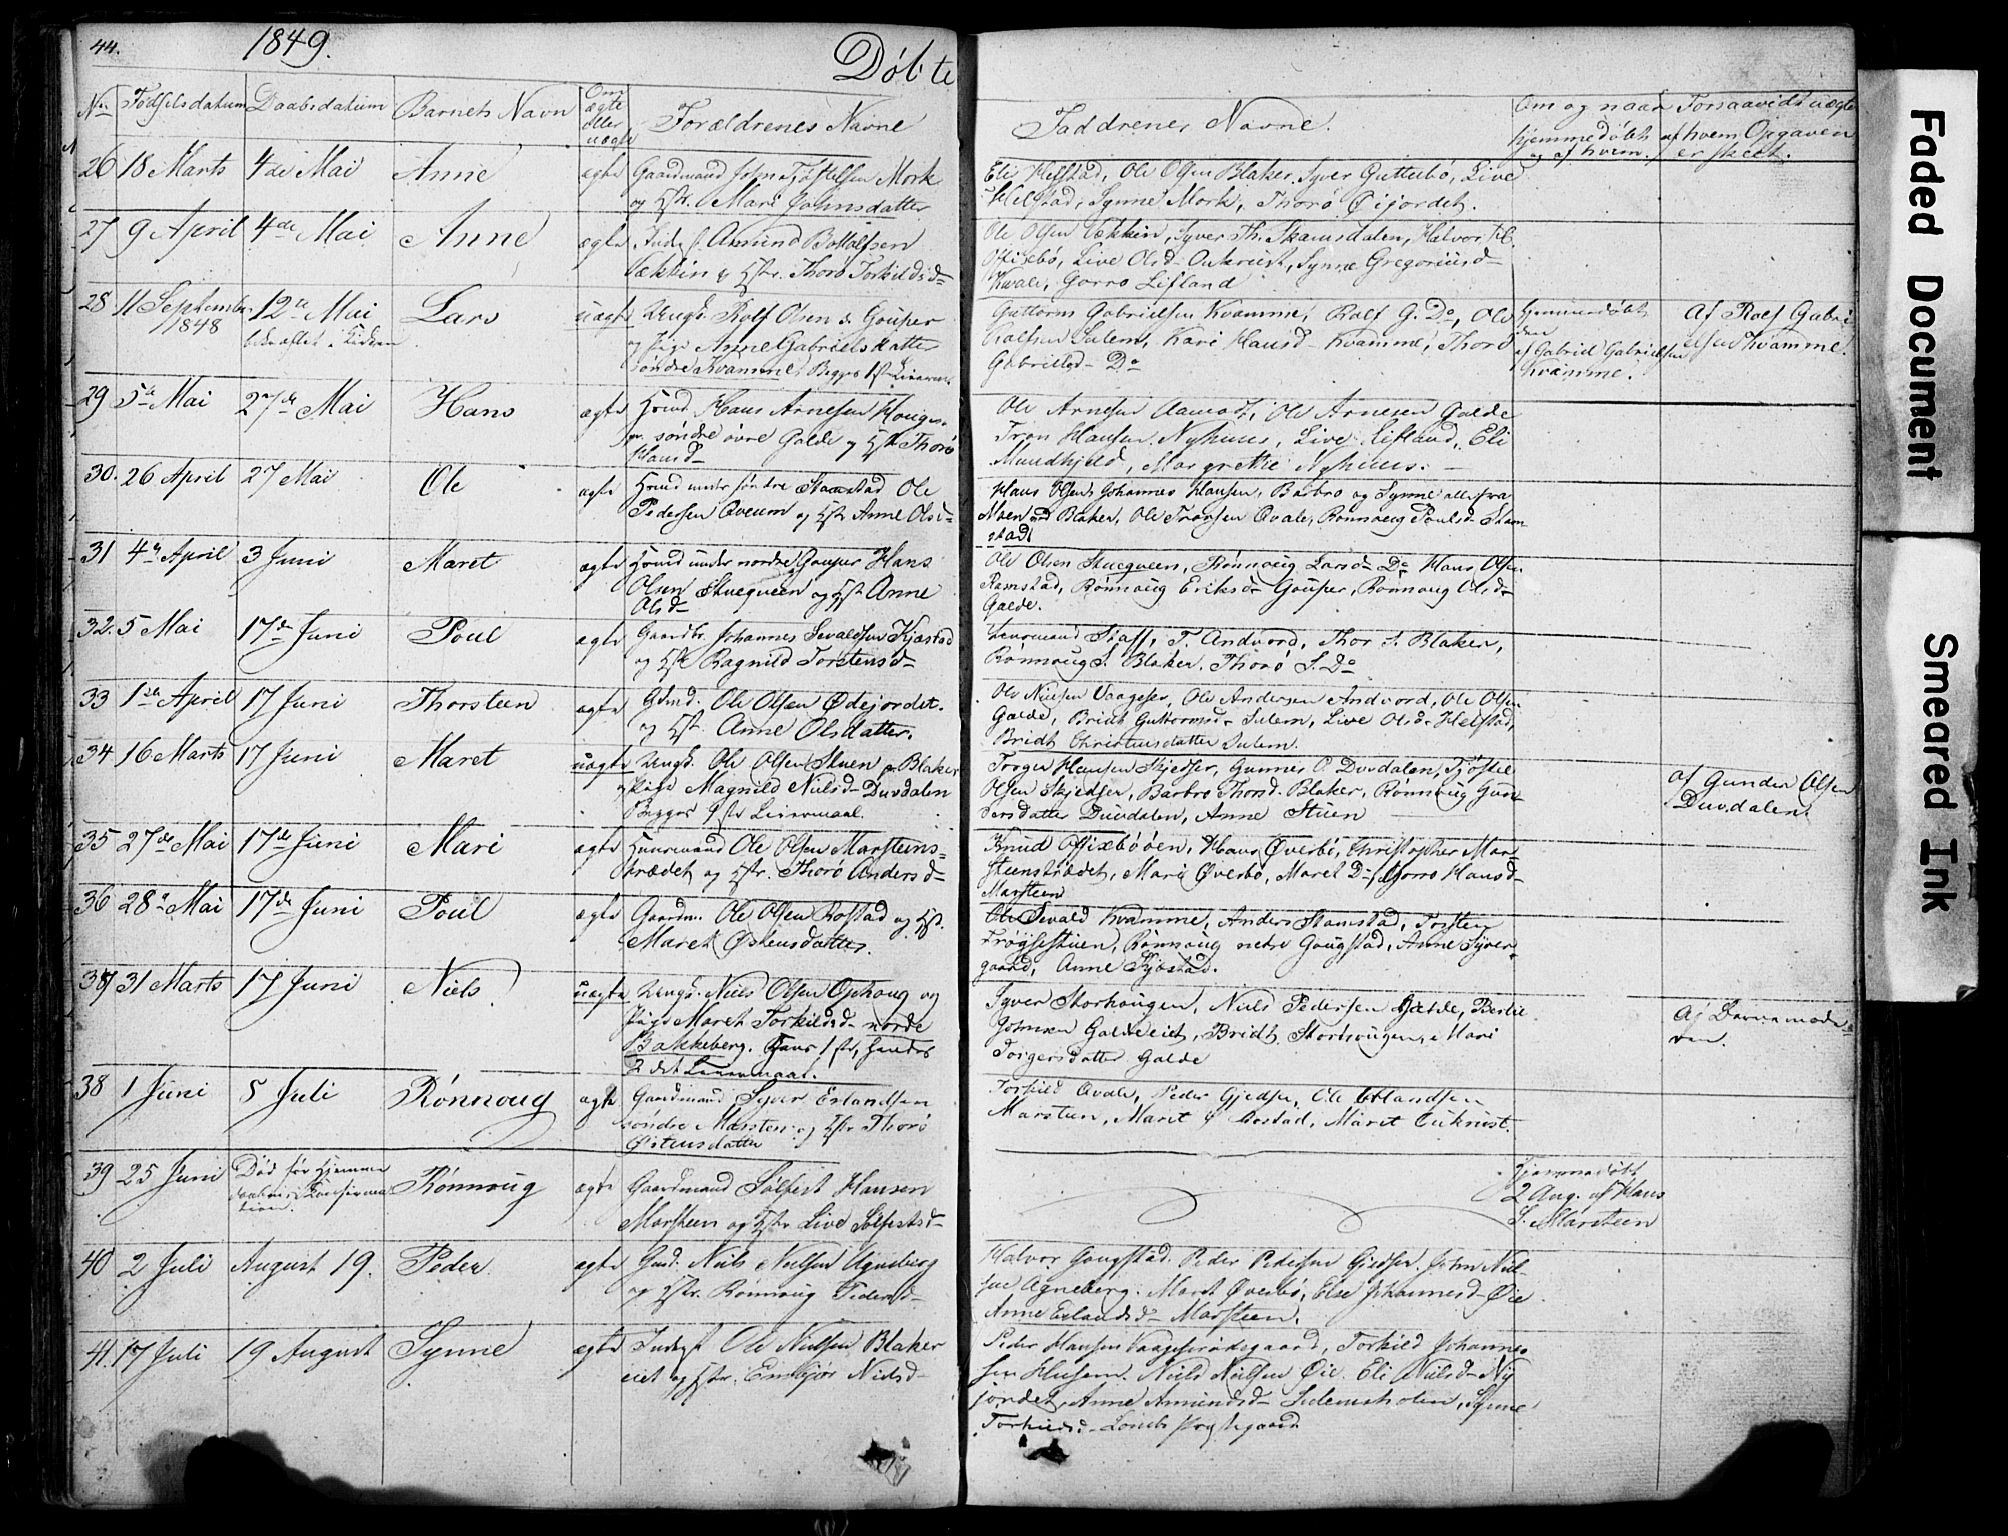 44.
1849.
Døbte
No
Fødselsdatum
Daabsdatum
Barnets Navn
Om ægte eller uægte
Forældrenes Navne
Faddrenes Navne.
Om og naar hjemmedøbt og af hvem.
af hvem Opgaven er skeet.
26 18 Marts 4de Mai Anne ægte Gaardmand John Mork
og Hstr. Mari Johnsdatter
Eli Helstad, Ole Olsen Blaker, Syver Gutterbø, Live
Helstad, Synne Mork, Thorø Øijordet.
27 9 April 4de Mai Anne ægte Amund Bottolfsen
og Hstr. Thorø Torkildsd-
Ole Olsen Vekkin, Syver Th. Skamsdalen, Halvor
Live Olsd- Aukrust, Synne Gregoriusd-
Kvale, Gorro Lifland
28 11 September 1848 12te Mai bekræftet i Kirken Lars uægte Ungk. Rolf Olsen Gouper
og Pige Anne Gabrielsdatter
søndre Kvamme, Begges 1st Leierm.
Guttorm Gabrielsen Kvamme, Rolf G. Do, Ole
Sulem, Kari Hansd- Kvamme, Thorø
Gabrielsd- Do
af Gabriel Gabrielsen
Kvamme.
Af Rolf Gabri
elsen Kvamme.
29 5te Mai 27de Mai Hans ægte Hmd. Hans Arnesen Hougen
søndre øvre Galde og Hstr Thorø
Hansd-
Ole Arnesen Aamodt, Ole Arnesen Galde
Tron Hansen Nyhuus, Live Lifland, Eli
Mundhjeld, Margrethe Nyhuus.
30. 26 April 27 Mai Ole ægte Hmd under søndre Stamstad Ole
Pedersen Qveum og Hstr Anne Olsd-
Hans Olsen, Johannes Hansen, Barbro og Synne alle fra
Moen Blaker, Ole Qvale, Rønnoug Poulsd- Stam
stad.
31 4de April 3 Juni Maret ægte Hmd under nordre Gouper Hans
Olsen Stueqveen og Hstr Anne
Olsd-
Ole Olsen Stueqveen, Rønnoug Larsd- Do Hans Olsen
Ramstad, Rønnoug Eriksd- Gouper, Rønnoug Olsd-
Galde.
32. 5 Mai 17de Juni Poul ægte Gaardbr. Johannes Sevaldsen Kjæstad
og Hstr Ragnild Torstensd-
Lensmand Staff, T. Andvord, Thor S. Blaker,
Rønnoug S. Blaker, Thorø S. Do
33 1ste April 17 Juni Thorsteen ægte Ole Olsen Ødejordet.
og Hstr. Anne Olsdatter.
Ole Nielsen Ole Andersen Andvord, Ole Olsen
Galde, Bridt Guttormsd- Sulem, Live Olsd- Helstad,
Bridt Christensdatter Sulem.
34 16 Marts 17 Juni Maret uægte Ungk. Ole Olsen Stuen Blaker
og Pige Magnild Nielsd- Duvdalen
Begges 1ste Leiermaal.
Hansen Skjedser, Gunner O. Duvdalen,
Olsen Skjedser, Barbro Thorsd- Blaker, Rønnoug Gun
dersdatter Duvdalen, Anne Stuen
af Gunder Olsen
Duvdalen.
35 27de Mai 17de Juni Mari ægte Huusmand Ole Olsen Marsteins-
trædet og Hstr. Thorø Andersd-
Knud Hans Øverbø, Christopher Mar-
steenstrædet, Mari Øverbø, Maret Do, Gorro Hansd-
Marsteen
36 28de Mai 17de Juni Poul ægte Gaardm. Ole Olsen Rostad og Hstr.
Maret Østensdatter.
Sevald Kvamme, Anders Stamstad, Torsten
Rønnoug nedre Gougstad, Anne Syver
gaard, Anne Kjæstad.
37 31 Marts 17 Juni Niels uægte Ungk. Niels Olsen Ophoug og
Pige Maret Torkildsd- nordre
Bakkeberg. Hans 1ste, hendes
2det Leiermaal.
Syver Storhougen, Niels Pedersen
Johnsen Galdeeiet, Bridt Storhougen, Mari
Torgersdatter Galde
Af Barnemode
ren.
38 1 Juni 5 Juli Rønnoug ægte Gaardmand Syver Erlandsen
søndre Marsten og Hstr Thorø
Østensdatter
Torkild Qvale, Peder Gjedser, Ole Erlandsen
Marsteen, Maret Maret Aukrust.
39 25 Juni Død før hjemme
daabens Confirma
tion. Rønnoug ægte Gaardmand Sølfest Hansen
Marsteen og Hstr Live Sølfestsd-
Hjemmedøbt
2 Aug. af Hans
S. Marsteen
40 2 Juli August 19. Peder ægte Gmd. Niels Nielsen Agneberg
og Hstr. Rønnoug Pedersd-
Halvor Gougstad. Peder Pedersen Gjedser. John Niel-
sen Agneberg. Maret Øverbø, Else Johannesd- Øie
Anne Erlandsd- Marsteen.
41. 17 Juli 19 August Synne ægte Inderst Ole Nielsen Blaker
eiet og Hstr. Embjør Nielsd-
Peder Hansen Torkild Johannes
sen Husem. Niels Nielsen Øie. Eli Nielsd- Ny
jordet, Anne Amundsd- Sulemsholen, Synne
Torkildsd- Lombs Præstegaard
Faded Document
Smeared Ink